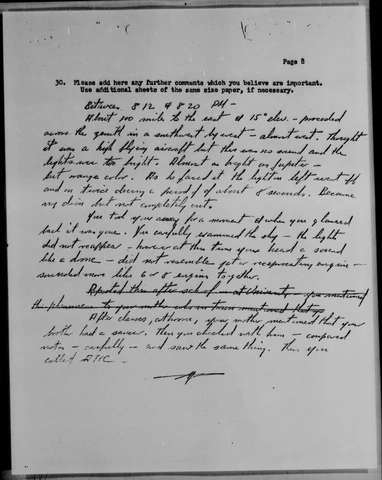 Page 8
30. Please add here any further comments which you believe are important.
Use additional sheets of the same size paper, if necessary.
Between 812 & 820 PM -
About 100 mile to the east at 15° elev. - proceeded
across the zenith in a southwest by west - almost west. Thought
it was a high flying aircraft but this was no sound and the
lights were too bright. Almost as bright as Jupiter -
but orange color. As he faced at the light on left went off
and on twice during a period of about 8 seconds. Became
very dim but not completely out.
You took your away for a moment & when you glanced
back it was gone. You carefully examined the sky - the light
did not reappear - however at this time you heard a sound
like a drone - did not resemble jet or reciprocating engine -
sounded more like 6 or 8 engines together.
after school - at University - you mentioned
to your mother
After classes, at home, your mother mentioned that you
both had a saucer. Then you checked with him - compared
notes - carefully - and saw the same thing. Then you
called ATIC.